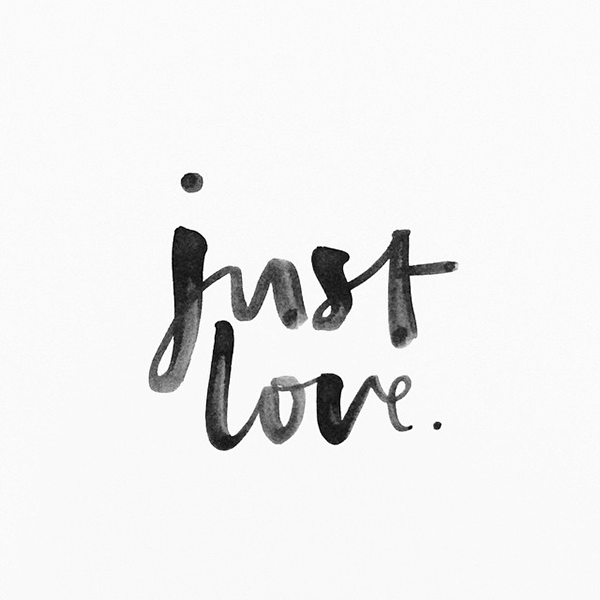 just
love.